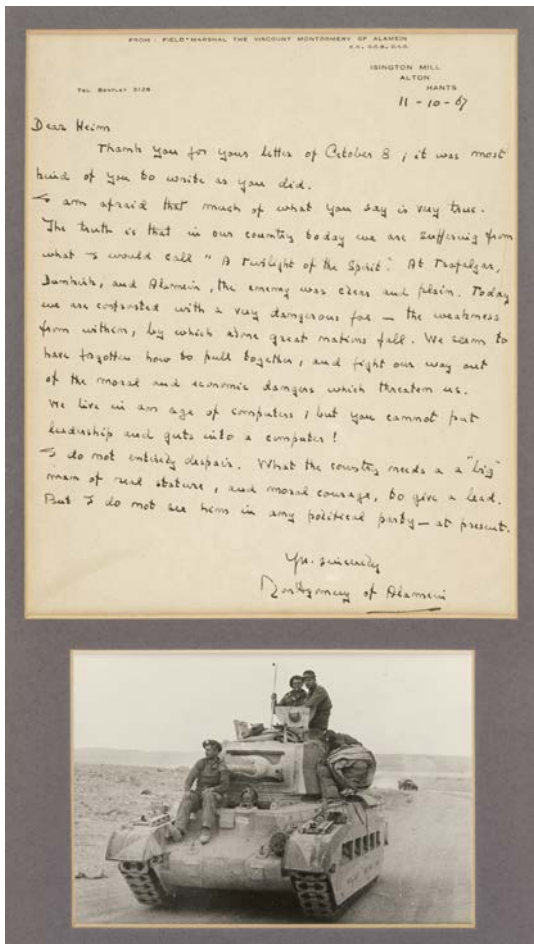 FROM : FIELD-MARSHAL THE VISCOUNT MONTGOMERY OF ALAMEIN
K.G., G.C.B., D.S.O.
ISINGTON MILL
ALTON
HANTS
TEL. BENTLEY 3126
11-10-67
Dear Heim
Thank you for your letter of October 8 ; it was most
kind of you to write as you did.
I am afraid that much of what you say is very true.
The truth is that in our country today we are suffering from
what I would call "A Twilight of the Spirit". At Trafalgar,
Dunkirk, and Alamein, the enemy was clear and plain. Today
we are confronted with a very dangerous foe — the weakness
from within, by which alone great nations fall. We seem to
have forgotten how to pull together, and fight our way out
of the moral and economic dangers which threaten us.
We live in an age of computers ; but you cannot put
leadership and guts into a computer !
I do not entirely despair. What the country needs is a "big"
man of real stature, and moral courage, to give a lead.
But I do not see him in any political party — at present.
Yrs. sincerely
Montgomery of Alamein